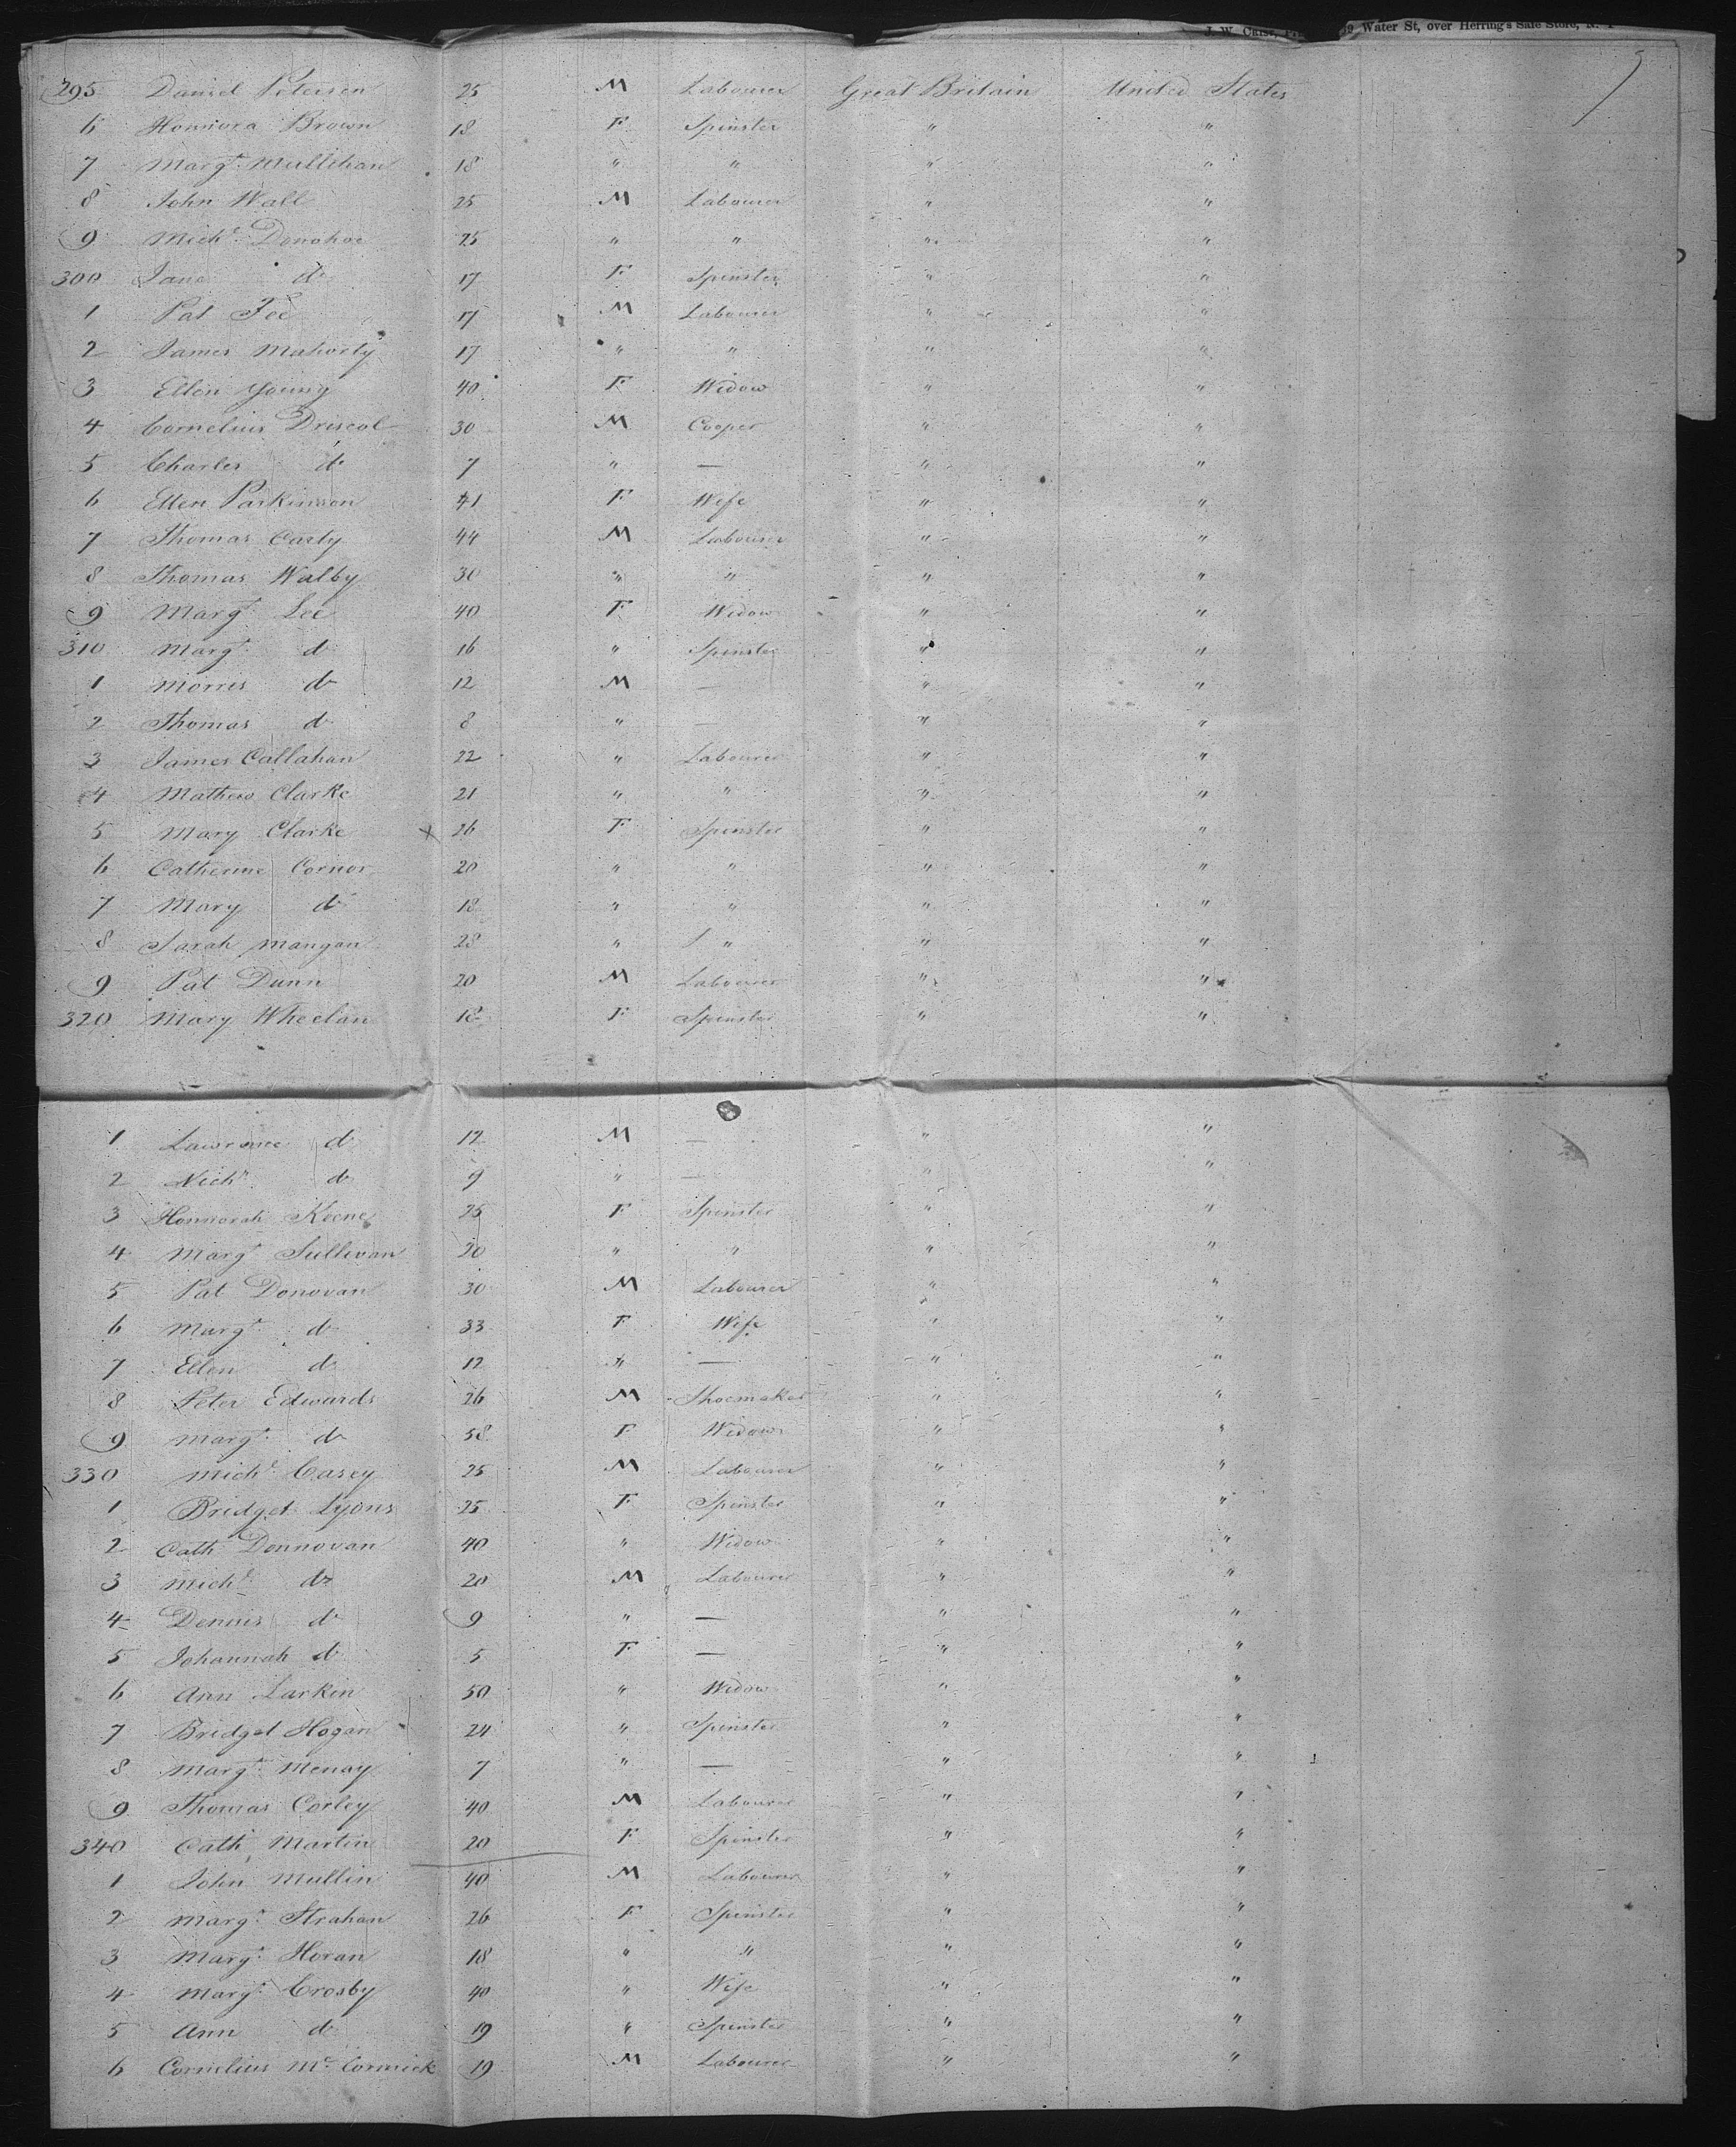 Water St, over Herring's Safe Store, N. Y
5
295 Daniel Petersen 25 M Labourer Great Britain United States
6 Honnora Brown 18 F Spinster " "
7 Margt Mullihan 18 " " " "
8 John Wall 25 M Labourer " "
9 Michl Donohoe 25 " " " "
300 Jane do 17 F Spinster " "
1 Pat Fee 17 M Labourer " "
2 James Mahorty 17 " " " "
3 Ellen Young 40 F Widow " "
4 Cornelius Driscol 30 M Cooper " "
5 Charles do 7 " — " "
6 Ellen Parkinson 41 F Wife " "
7 Thomas Carty 44 M Labourer " "
8 Thomas Walby 30 " " " "
9 Margt Lee 40 F Widow " "
310 Margt do 16 " Spinster " "
1 Morris do 12 M — " "
2 Thomas do 8 " — " "
3 James Callahan 22 " Labourer " "
4 Mathew Clarke 21 " " " "
5 Mary Clarke x 26 F Spinster " "
6 Catherine Connor 20 " " " "
7 Mary do 18 " " " "
8 Sarah Mangan 28 " " " "
9 Pat Dunn 20 M Labourer " "
320 Mary Wheelan 18 F Spinster " "
1 Lawrence do 12 M — " "
2 Nichs do 9 " — " "
3 Honnorah Keene 25 F Spinster " "
4 Margt Sullivan 20 " " " "
5 Pat Donovan 30 M Labourer " "
6 Margt do 33 F Wife " "
7 Ellen do 12 " — " "
8 Peter Edwards 26 M Shoemaker " "
9 Margt do 58 F Widow " "
330 Michl Casey 25 M Labourer " "
1 Bridget Lyons 25 F Spinster " "
2 Cath Donnovan 40 " Widow " "
3 Michl do 20 M Labourer " "
4 Dennis do 9 " — " "
5 Johannah do 5 F — " "
6 Ann Larkin 50 " Widow " "
7 Bridget Hogan 24 " Spinster " "
8 Margt Menay 7 " — " "
9 Thomas Corley 40 M Labourer " "
340 Cath Martin 20 F Spinster " "
1 John Mullin 40 M Labourer " "
2 Margt Strahan 26 F Spinster " "
3 Margt Horan 18 " " " "
4 Margt Crosby 40 " Wife " "
5 Ann do 19 " Spinster " "
6 Cornelius McCormick 19 M Labourer " "